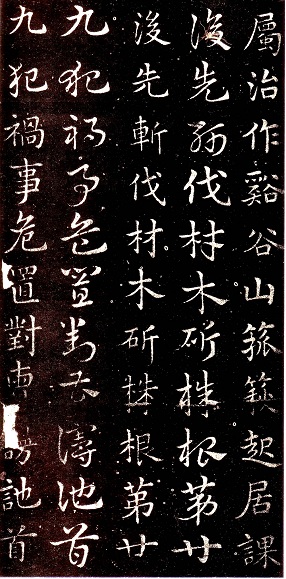 屬治作谿谷山箛篍起居課
後先斬伐材木斫株根第廿
後先斬伐材木斫株根第廿
九犯禍事危置對曹池首
九犯禍事危置對訑首